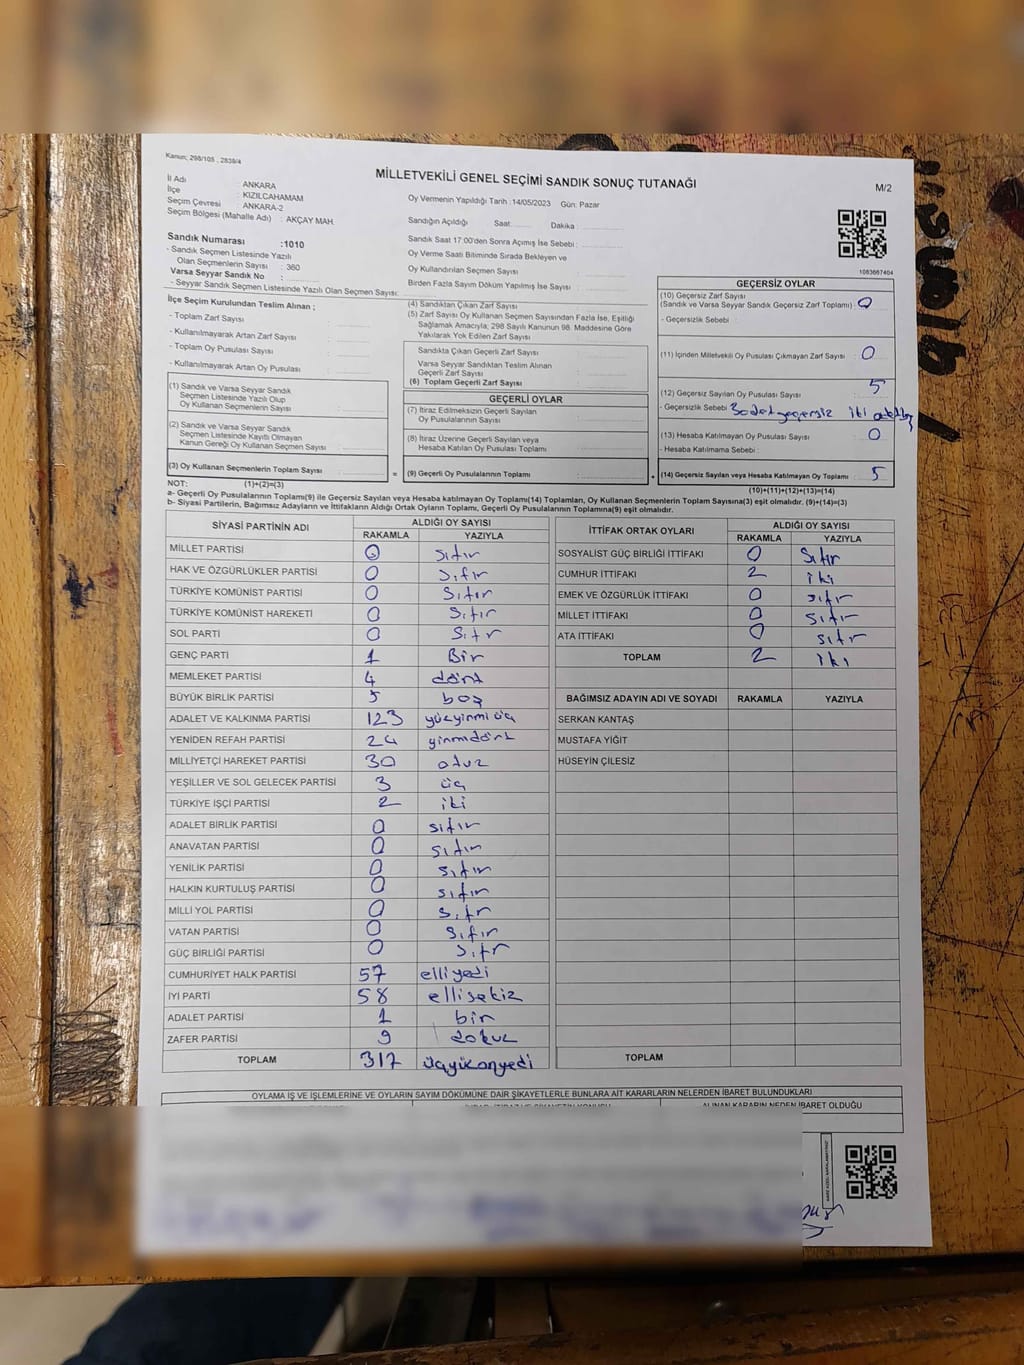 Kanun; 298/105 , 2839/4
MİLLETVEKİLİ GENEL SEÇİMİ SANDIK SONUÇ TUTANAĞI
M/2
İl Adı : ANKARA
İlçe : KIZILCAHAMAM
Seçim Çevresi : ANKARA-2
Seçim Bölgesi (Mahalle Adı) : AKÇAY MAH.
Oy Vermenin Yapıldığı Tarih : 14/05/2023 Gün: Pazar
Sandığın Açıldığı Saat Dakika
Sandık Saat 17:00'den Sonra Açımış İse Sebebi :
Oy Verme Saati Bitiminde Sırada Bekleyen ve
Oy Kullandırılan Seçmen Sayısı :
Birden Fazla Sayım Döküm Yapılmış İse Sayısı :
1083667404
Sandık Numarası :1010
- Sandık Seçmen Listesinde Yazılı
Olan Seçmenlerin Sayısı : 380
Varsa Seyyar Sandık No :
- Seyyar Sandık Seçmen Listesinde Yazılı Olan Seçmen Sayısı:
İlçe Seçim Kurulundan Teslim Alınan ;
- Toplam Zarf Sayısı
- Kullanılmayarak Artan Zarf Sayısı
- Toplam Oy Pusulası Sayısı
- Kullanılmayarak Artan Oy Pusulası
(1) Sandık ve Varsa Seyyar Sandık
Seçmen Listesinde Yazılı Olup
Oy Kullanan Seçmenlerin Sayısı
(2) Sandık ve Varsa Seyyar Sandık
Seçmen Listesinde Kayıtlı Olmayan
Kanun Gereği Oy Kullanan Seçmen Sayısı
(3) Oy Kullanan Seçmenlerin Toplam Sayısı
(4) Sandıktan Çıkan Zarf Sayısı
(5) Zarf Sayısı Oy Kullanan Seçmen Sayısından Fazla İse, Eşitliği
Sağlamak Amacıyla; 298 Sayılı Kanunun 98. Maddesine Göre
Yakılarak Yok Edilen Zarf Sayısı
Sandıkta Çıkan Geçerli Zarf Sayısı
Varsa Seyyar Sandıktan Teslim Alınan
Geçerli Zarf Sayısı
(6) Toplam Geçerli Zarf Sayısı
GEÇERLİ OYLAR
(7) İtiraz Edilmeksizin Geçerli Sayılan
Oy Pusulasının Sayısı
(8) İtiraz Üzerine Geçerli Sayılan veya
Hesaba Katılan Oy Pusulası Toplamı
= (9) Geçerli Oy Pusulalarının Toplamı
GEÇERSİZ OYLAR
(10) Geçersiz Zarf Sayısı
(Sandık ve Varsa Seyyar Sandık Geçersiz Zarf Toplamı) 0
- Geçersizlik Sebebi :
(11) İçinden Milletvekili Oy Pusulası Çıkmayan Zarf Sayısı : 0
(12) Geçersiz Sayılan Oy Pusulası Sayısı 5
- Geçersizlik Sebebi geçersiz iki
(13) Hesaba Katılmayan Oy Pusulası Sayısı 0
- Hesaba Katılmama Sebebi :
+ (14) Geçersiz Sayılan veya Hesaba Katılmayan Oy Toplamı : 5
NOT: (1)+(2)=(3)
(10)+(11)+(12)+(13)=(14)
a- Geçerli Oy Pusulalarının Toplamı(9) ile Geçersiz Sayılan veya Hesaba katılmayan Oy Toplamı(14) Toplamları, Oy Kullanan Seçmenlerin Toplam Sayısına(3) eşit olmalıdır. (9)+(14)=(3)
b- Siyasi Partilerin, Bağımsız Adayların ve İttifakların Aldığı Ortak Oyların Toplamı, Geçerli Oy Pusulalarının Toplamına(9) eşit olmalıdır.
SİYASİ PARTİNİN ADI ALDIĞI OY SAYISI
RAKAMLA YAZIYLA
MİLLET PARTİSİ 0 sıfır
HAK VE ÖZGÜRLÜKLER PARTİSİ 0 sıfır
TÜRKİYE KOMÜNİST PARTİSİ 0 sıfır
TÜRKİYE KOMÜNİST HAREKETİ 0 sıfır
SOL PARTİ 0 sıfır
GENÇ PARTİ 1 Bir
MEMLEKET PARTİSİ 4 dört
BÜYÜK BİRLİK PARTİSİ 5 beş
ADALET VE KALKINMA PARTİSİ 123 yüzyirmi üç
YENİDEN REFAH PARTİSİ 24 yirmidört
MİLLİYETÇİ HAREKET PARTİSİ 30 otuz
YEŞİLLER VE SOL GELECEK PARTİSİ 3 üç
TÜRKİYE İŞÇİ PARTİSİ 2 iki
ADALET BİRLİK PARTİSİ 0 sıfır
ANAVATAN PARTİSİ 0 sıfır
YENİLİK PARTİSİ 0 sıfır
HALKIN KURTULUŞ PARTİSİ 0 sıfır
MİLLİ YOL PARTİSİ 0 sıfır
VATAN PARTİSİ 0 sıfır
GÜÇ BİRLİĞİ PARTİSİ 0 sıfır
CUMHURİYET HALK PARTİSİ 57 elliyedi
İYİ PARTİ 58 ellisekiz
ADALET PARTİSİ 1 bir
ZAFER PARTİSİ 9 dokuz
TOPLAM 317 üçyüzonyedi
İTTİFAK ORTAK OYLARI ALDIĞI OY SAYISI
RAKAMLA YAZIYLA
SOSYALİST GÜÇ BİRLİĞİ İTTİFAKI 0 Sıfır
CUMHUR İTTİFAKI 2 iki
EMEK VE ÖZGÜRLÜK İTTİFAKI 0 sıfır
MİLLET İTTİFAKI 0 sıfır
ATA İTTİFAKI 0 sıfır
TOPLAM 2 iki
BAĞIMSIZ ADAYIN ADI VE SOYADI RAKAMLA YAZIYLA
SERKAN KANTAŞ
MUSTAFA YİĞİT
HÜSEYİN ÇİLESİZ
TOPLAM
OYLAMA İŞ VE İŞLEMLERİNE VE OYLARIN SAYIM DÖKÜMÜNE DAİR ŞİKAYETLERLE BUNLARA AİT KARARLARIN NELERDEN İBARET BULUNDUKLARI
ALINAN KARARIN NEDEN İBARET OLDUĞU